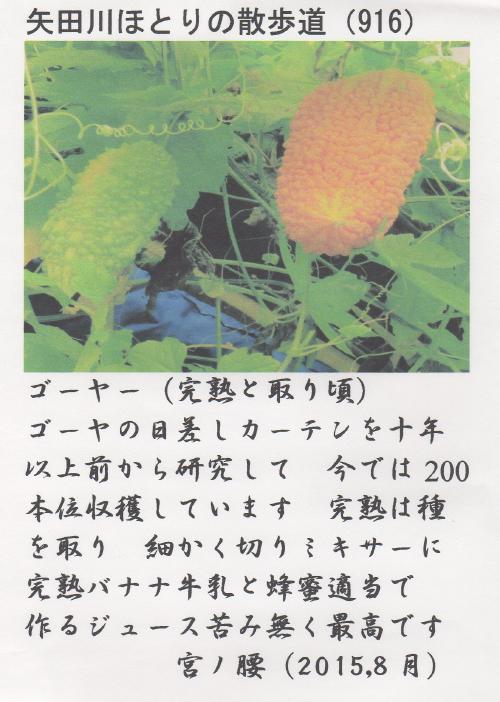 矢田川ほとりの散歩道（916）
ゴーヤー（完熟と取り頃）
ゴーヤの日差しカーテンを十年
以上前から研究して　今では 200
本位収穫しています　完熟は種
を取り　細かく切りミキサーに
完熟バナナ牛乳と蜂蜜適当で
作るジュース苦み無く最高です
宮ノ腰（2015,8 月）